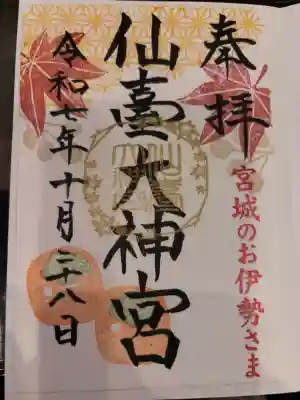 奉拝
宮城のお伊勢さま
仙臺大神宮
令和七年十月二十八日